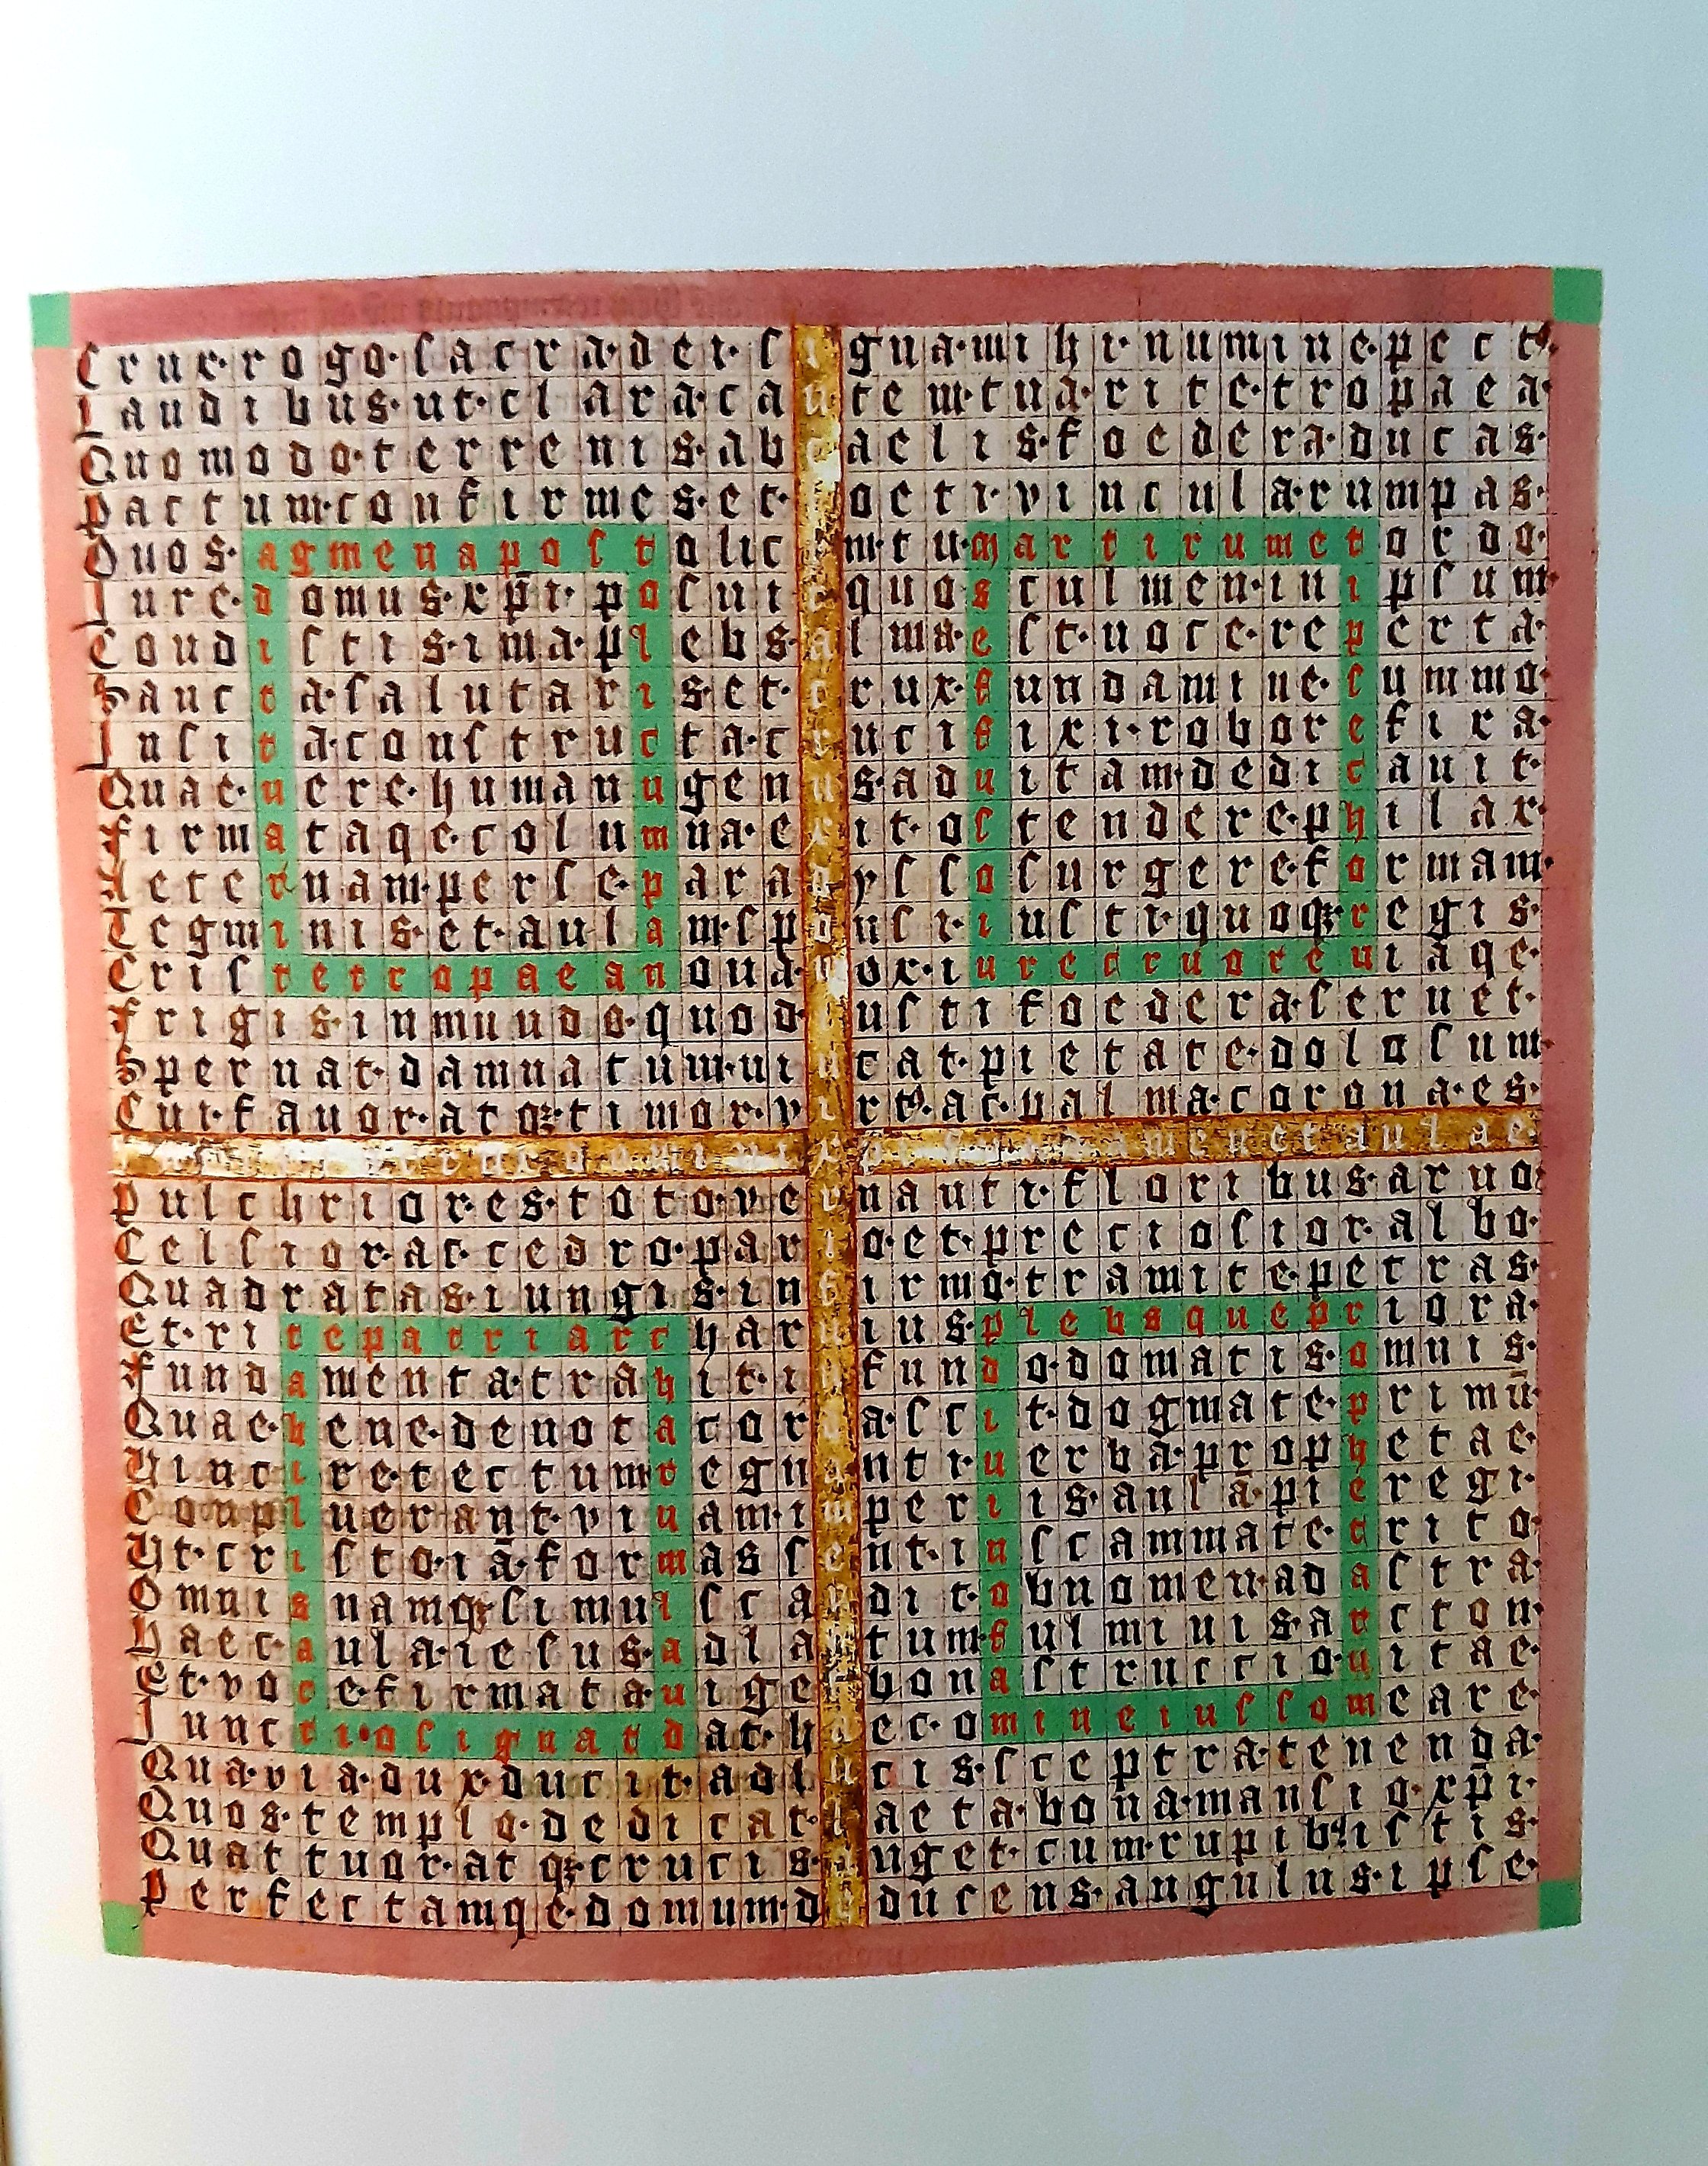 Crux·rogo·sacra·dei·signa·mihi·numine·pectꝰ·
Laudibus·ut·clara·cantem·tua·rite·tropaea·
Quomodo·terrenis·ab caelis·foedera·ducas·
Pactum·confirmes·et·loeti·vincula·rumpas·
Quos·agmen apostolicum·tu·martirum et ordo·
Iure·domus·xp̄i·posuit quos culmen·in ipsum·
Condistis·ima·plebs·alma·est·uoce·reperta·
Sancta·salutaris·et·crux·fundamine·summo·
Insita·constructa·crucifixi·robore fixa·
Quae·uere·humanu genus·ad uitam·dedicauit·
Firmataqe·columna·exit·ostendere·philax·
Aeternam·per se·paradysso surgere·formam·
Tegminis·et·aulam·sponsi·iusti·quoqꝫ·regis·
Criste tropaea nouam·ox·iure cruore uiaqe·
Frigis·in mundo·quod iusti foedera·seruet·
Spernat·damnatum·uincat·pietate·dolosum·
Cui·fauor·atqꝫ·timor·virtꝰ·ac·palma·corona·es·
Inclita crux domini xpi fundamen et aulae
Pulchrior·es·toto·vernanti·floribus·aruo·
Celsior·ac·cedro·pario·et·preciosior·albo·
Quadratas·iungis·in firmo·tramite·petras·
Et·rite patriarcharuius·plebsque priora·
Fundamenta·trahit·in fundo·domatis·omnis·
Quae·bene·denota cord a·scit·dogmate·primū·
Vincire·tectum regnanti·uerba·prophetae·
Conpluerant·viuam·imperiis·aulā·pie regi·
Vt·cristo·iā·formassent·in scammate·rito·
Omnis namqꝫ simul scandit·ob nomen·ad astra·
Haec·aula·iesus·ad laetum·fulminis·arcton·
Et·voce·firmata·uiget bona structio·uitae·
Iunctio·signat dat·haec·omine ius comeare·
Qua·via·dux·ducit·ad lucis·sceptra·tenenda·
Quos·templo·dedicat·laeta·bona·mansio·xp̄i·
Quattuor·atqꝫ crucis·anget·cum·rupibꝰ istis·
Perfectamqe·domum·deducens·angulus·ipse·